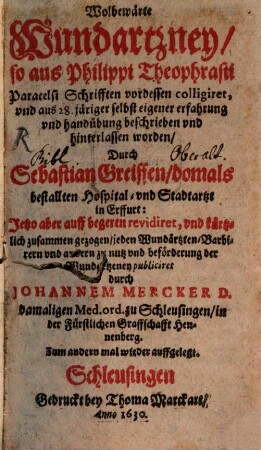 Wolbewärte
Wundartzney/
so aus Philippi Theophrasti
Paracelsi Schrifften vordessen colligiret,
vnd aus 28. järiger selbst eigener erfahrung
vnd handübung beschrieben vnd
hinterlassen worden/
Durch
Bibl Oberalt.
Sebastian Greiffen/domals
bestallten Hospital- vnd Stadtartzt
in Erffurt:
Jetzo aber auff begeren revidiret, vnd kürtz-
lich zusammen gezogen/jeden Wundärtzten/Barbi-
rern vnd andern zu nutz vnd beförderung der
Wundartzeney publiciret
durch
JOHANNEM MERCKER D.
damaligen Med. ord. zu Schleusingen/in
der Fürstlichen Graffschafft Hen-
nenberg.
Zum andern mal wieder auffgelegt.
Schleusingen
Gedruckt bey Thoma Marckart/
Anno 1630.